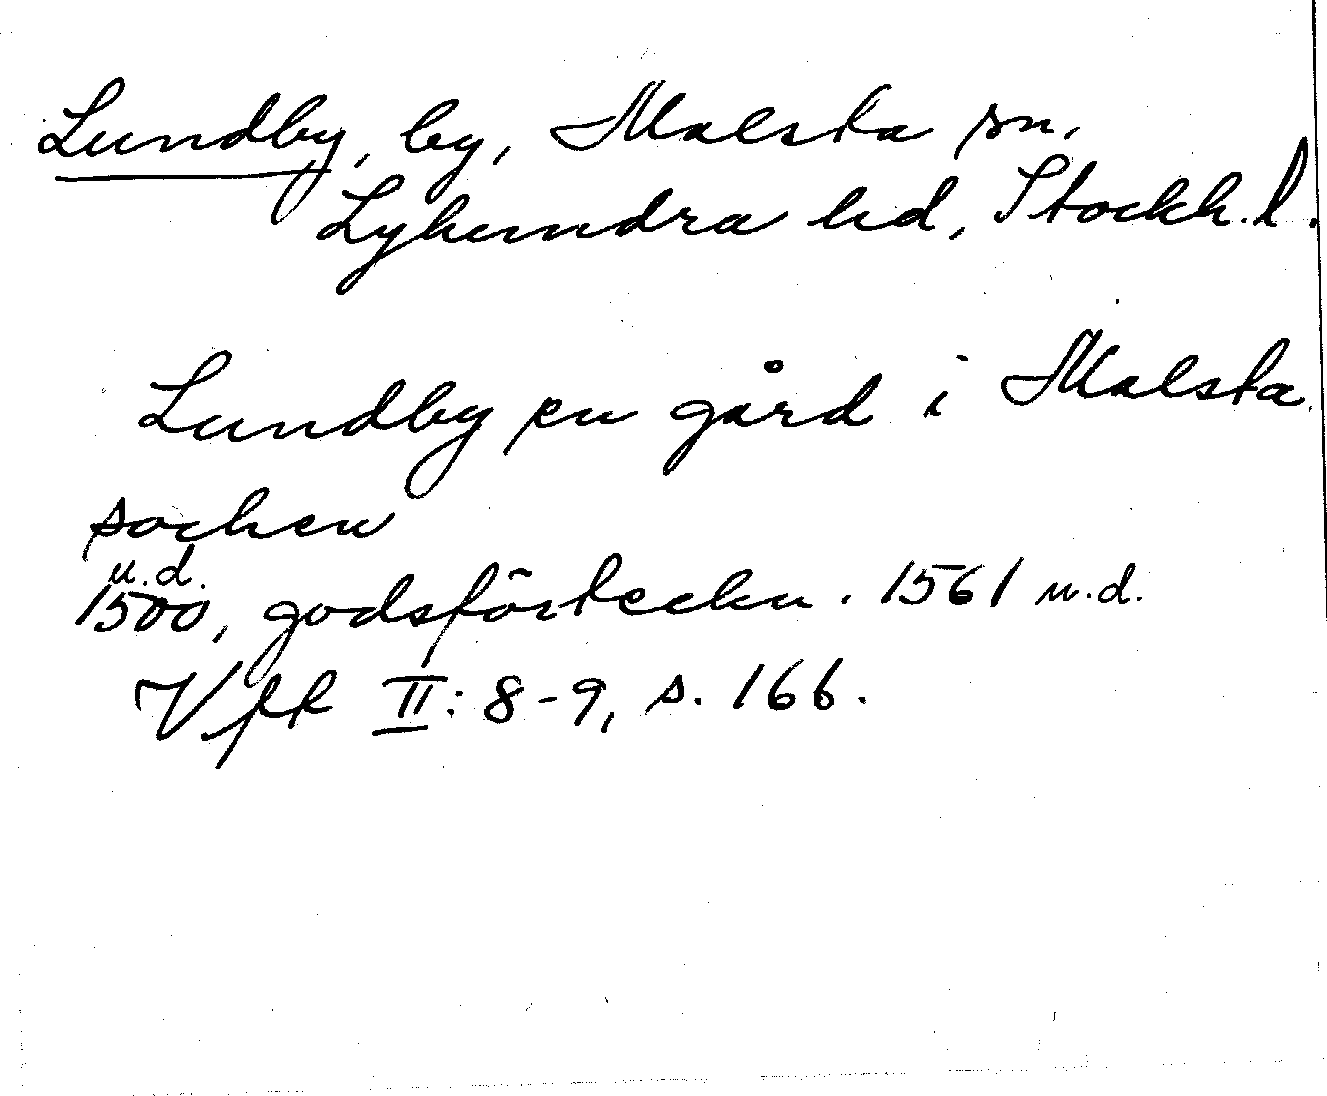 Lundby, by, Malsta sn,
Lyhundra hd, Stockh. l.
Lundby en gård i Malsta
sochen
u.d.
1500, godsförteckn. 1561 u.d.
Vfr II: 8-9, s. 166.